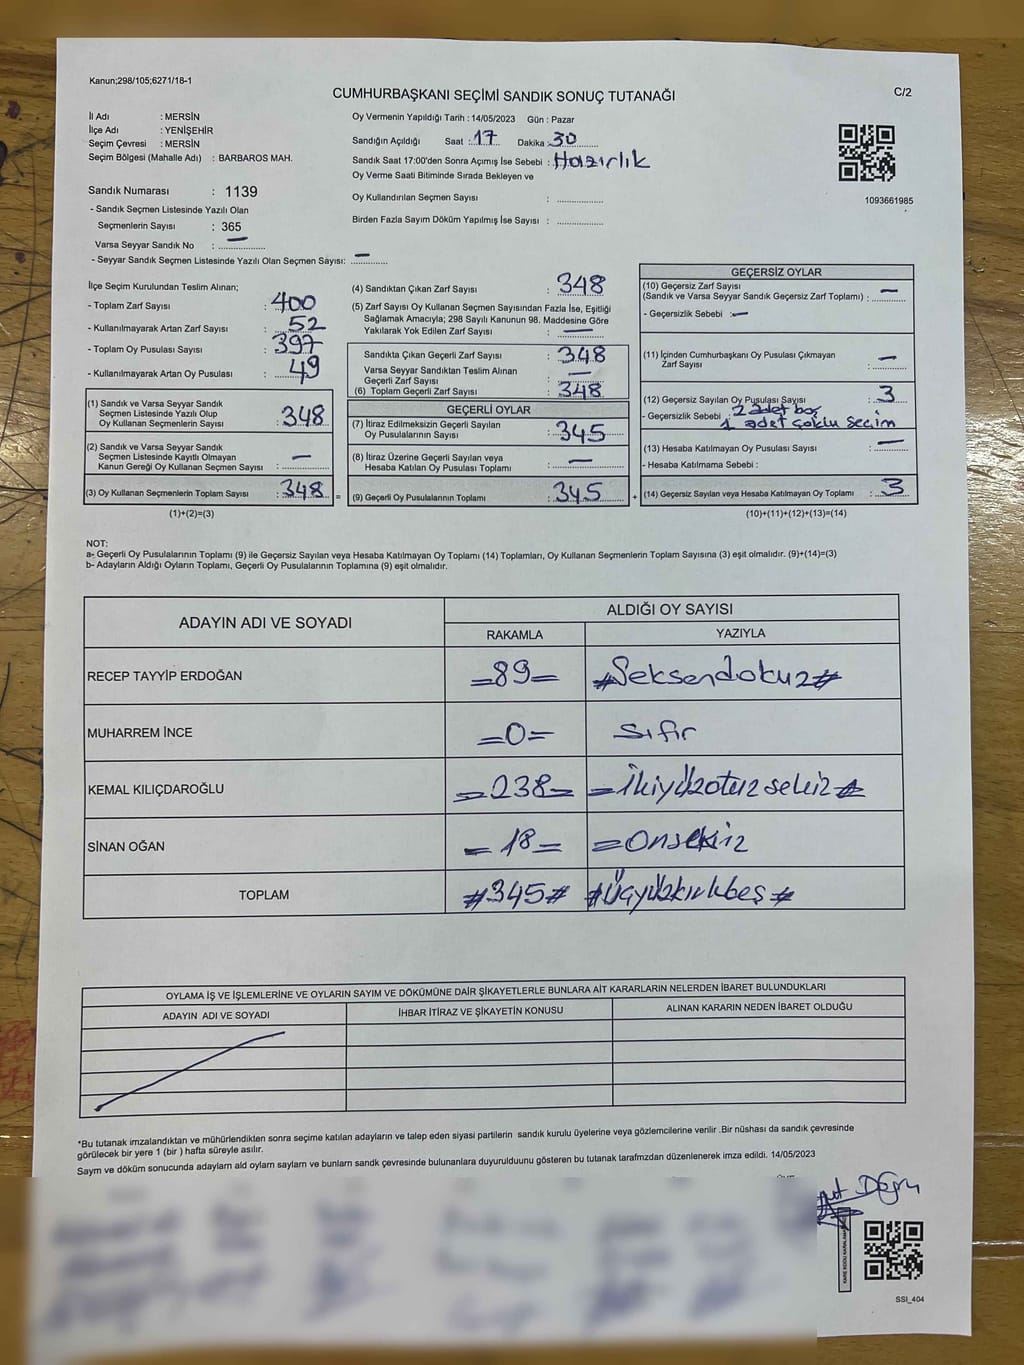 Kanun;298/105;6271/18-1
CUMHURBAŞKANI SEÇİMİ SANDIK SONUÇ TUTANAĞI
C/2
İl Adı : MERSİN
İlçe Adı : YENİŞEHİR
Seçim Çevresi : MERSİN
Seçim Bölgesi (Mahalle Adı) : BARBAROS MAH.
Sandık Numarası : 1139
- Sandık Seçmen Listesinde Yazılı Olan
Seçmenlerin Sayısı : 365
Varsa Seyyar Sandık No : —
- Seyyar Sandık Seçmen Listesinde Yazılı Olan Seçmen Sayısı: —
Oy Vermenin Yapıldığı Tarih : 14/05/2023 Gün : Pazar
Sandığın Açıldığı Saat : 17 Dakika : 30
Sandık Saat 17:00'den Sonra Açımış İse Sebebi : Hazırlık
Oy Verme Saati Bitiminde Sırada Bekleyen ve
Oy Kullandırılan Seçmen Sayısı :
Birden Fazla Sayım Döküm Yapılmış İse Sayısı :
1093661985
İlçe Seçim Kurulundan Teslim Alınan;
- Toplam Zarf Sayısı : 400
- Kullanılmayarak Artan Zarf Sayısı : 52
- Toplam Oy Pusulası Sayısı : 397
- Kullanılmayarak Artan Oy Pusulası : 49
(1) Sandık ve Varsa Seyyar Sandık
Seçmen Listesinde Yazılı Olup
Oy Kullanan Seçmenlerin Sayısı : 348
(2) Sandık ve Varsa Seyyar Sandık
Seçmen Listesinde Kayıtlı Olmayan
Kanun Gereği Oy Kullanan Seçmen Sayısı : —
(3) Oy Kullanan Seçmenlerin Toplam Sayısı : 348 =
(1)+(2)=(3)
(4) Sandıktan Çıkan Zarf Sayısı : 348
(5) Zarf Sayısı Oy Kullanan Seçmen Sayısından Fazla İse, Eşitliği
Sağlamak Amacıyla; 298 Sayılı Kanunun 98. Maddesine Göre
Yakılarak Yok Edilen Zarf Sayısı : —
Sandıkta Çıkan Geçerli Zarf Sayısı : 348
Varsa Seyyar Sandıktan Teslim Alınan
Geçerli Zarf Sayısı : —
(6) Toplam Geçerli Zarf Sayısı : 348
GEÇERLİ OYLAR
(7) İtiraz Edilmeksizin Geçerli Sayılan
Oy Pusulalarının Sayısı : 345
(8) İtiraz Üzerine Geçerli Sayılan veya
Hesaba Katılan Oy Pusulası Toplamı : —
(9) Geçerli Oy Pusulalarının Toplamı : 345 +
GEÇERSİZ OYLAR
(10) Geçersiz Zarf Sayısı
(Sandık ve Varsa Seyyar Sandık Geçersiz Zarf Toplamı) : —
- Geçersizlik Sebebi : —
(11) İçinden Cumhurbaşkanı Oy Pusulası Çıkmayan
Zarf Sayısı : —
(12) Geçersiz Sayılan Oy Pusulası Sayısı : 3
- Geçersizlik Sebebi : 2 adet boş
1 adet çoklu seçim
(13) Hesaba Katılmayan Oy Pusulası Sayısı : —
- Hesaba Katılmama Sebebi :
(14) Geçersiz Sayılan veya Hesaba Katılmayan Oy Toplamı : 3
(10)+(11)+(12)+(13)=(14)
NOT:
a- Geçerli Oy Pusulalarının Toplamı (9) ile Geçersiz Sayılan veya Hesaba Katılmayan Oy Toplamı (14) Toplamları, Oy Kullanan Seçmenlerin Toplam Sayısına (3) eşit olmalıdır. (9)+(14)=(3)
b- Adayların Aldığı Oyların Toplamı, Geçerli Oy Pusulalarının Toplamına (9) eşit olmalıdır.
ADAYIN ADI VE SOYADI
ALDIĞI OY SAYISI
RAKAMLA YAZIYLA
RECEP TAYYİP ERDOĞAN =89= #Seksendokuz#
MUHARREM İNCE =0= Sıfır
KEMAL KILIÇDAROĞLU =238= =İkiyüzotuzsekiz#
SİNAN OĞAN =18= =Onsekiz
TOPLAM #345# #Üçyüzkırkbeş#
OYLAMA İŞ VE İŞLEMLERİNE VE OYLARIN SAYIM VE DÖKÜMÜNE DAİR ŞİKAYETLERLE BUNLARA AİT KARARLARIN NELERDEN İBARET BULUNDUKLARI
ADAYIN ADI VE SOYADI İHBAR İTİRAZ VE ŞİKAYETİN KONUSU ALINAN KARARIN NEDEN İBARET OLDUĞU
*Bu tutanak imzalandıktan ve mühürlendikten sonra seçime katılan adayların ve talep eden siyasi partilerin sandık kurulu üyelerine veya gözlemcilerine verilir .Bir nüshası da sandık çevresinde
görülecek bir yere 1 (bir ) hafta süreyle asılır.
Saym ve döküm sonucunda adayların ald oylarn saylarn ve bunlarn sandk çevresinde bulunanlara duyurulduunu gösteren bu tutanak tarafmzdan düzenlenerek imza edildi. 14/05/2023
SSI_404